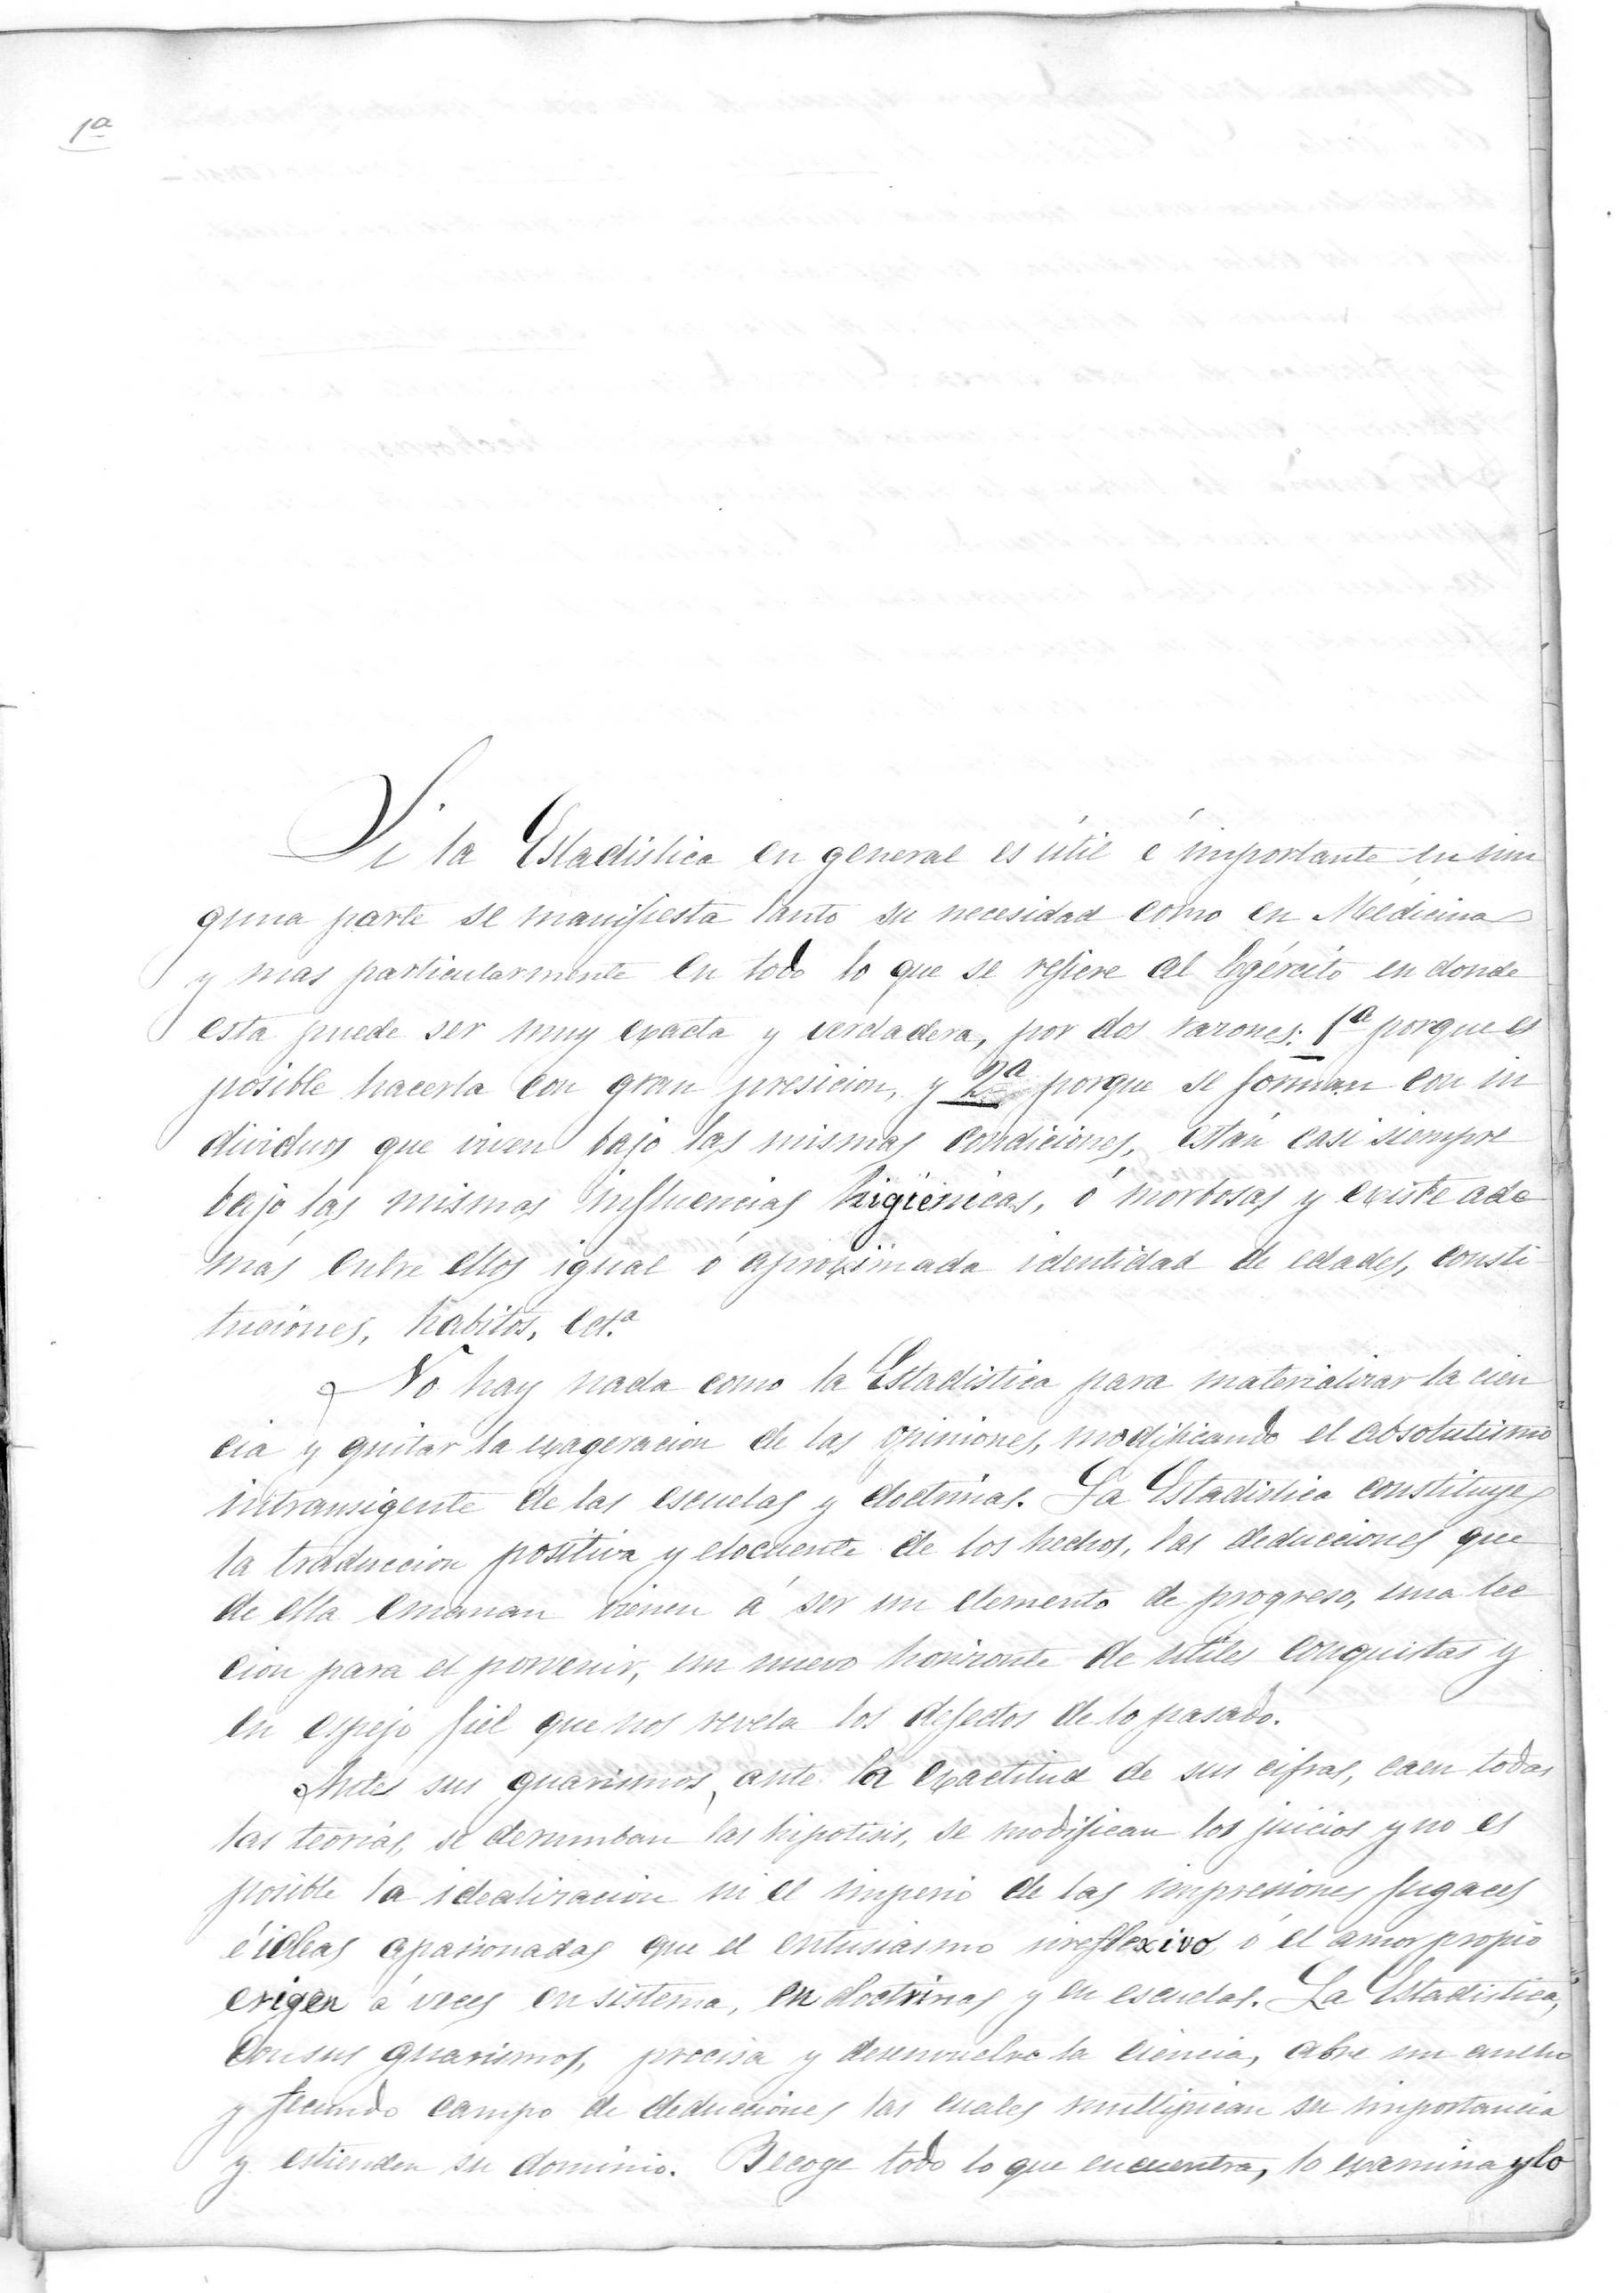 1ª
Si la Estadistica en general es útil é importante en nin
guna parte se manifiesta tanto su necesidad como en Medicina
y mas particularmente en todo lo que se refiere al Egército en donde
esta puede ser muy exacta y verdadera, por dos razones: 1ª porque es
posible hacerla con gran presicion, y 2ª porque se forman con in
dividuos que viven bajo las mismas condiciones, están casi siempre
bajo las mismas influencias higiénicas, ó morbosas y existe ade
más entre ellos igual ó aproximada identidad de edades, consti
tuciones, habitos, ect.ª
No hay nada como la Estadistica para materializar la cien
cia y quitar la exageracion de las opiniones, modificando el absolutismo
intransigente de las escuelas y doctrinas. La Estadistica constituye
la traduccion positiva y elocuente de los hechos, las deducciones que
de ella emanan vienen á ser un elemento de progreso, una lec
cion para el porvenir, un nuevo horizonte de utiles conquistas y
en espejo fiel que nos revela los defectos de lo pasado.
Antes sus guarismos, ante la exactitud de sus cifras, caen todas
las teorías, se derrumban las hipotisis, se modifican los juicios y no es
posible la idealizacion ni el imperio de las impresiones fugaces
é ideas apasionadas que el entusiasmo irreflexivo ó el amor propio
erigen á veces en sistema, en doctrinas y en escuelas. La Estadistica,
con sus guarismos, precisa y desenvuelve la ciencia, abre un ancho
y fecundo campo de deducciones las cuales multipican su importancia
y estienden su dominio. Recoge todo lo que encuentra, lo examina y lo